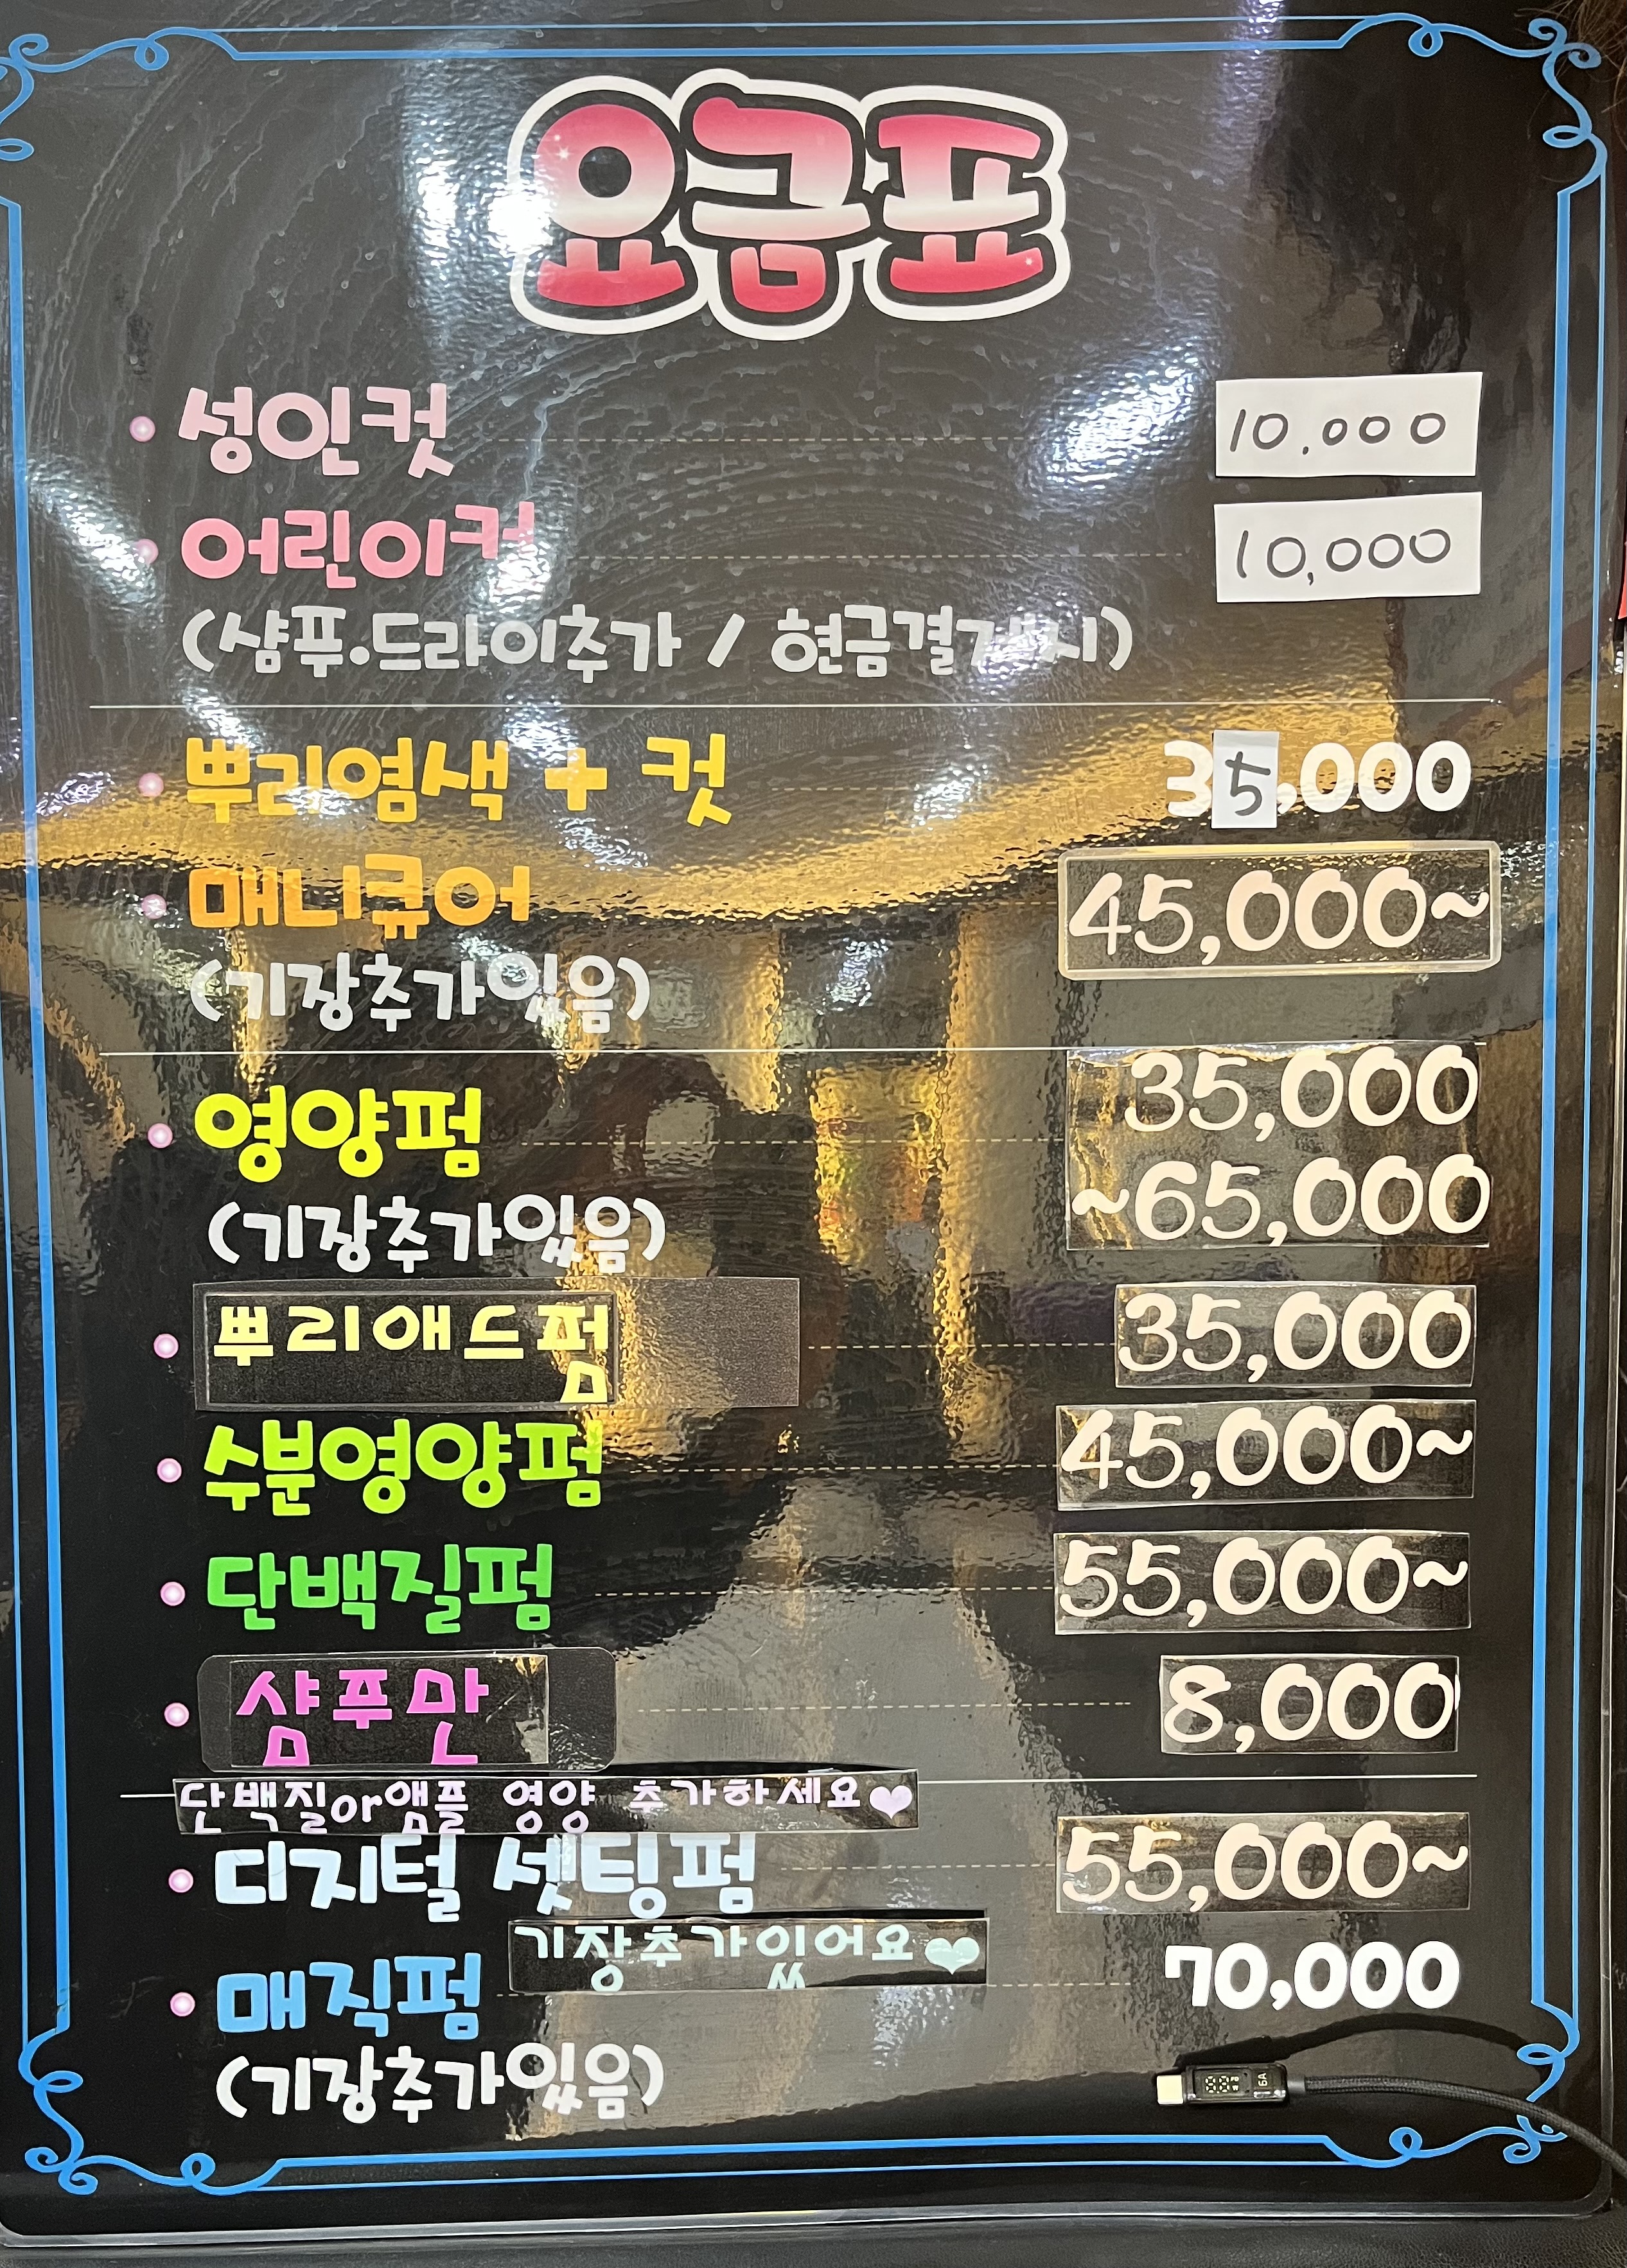 요금표
성인컷 10.000
어린이컷 10,000
(샴푸·드라이추가 / 현금결제시)
뿌리염색 + 컷 35,000
매니큐어 45,000~
(기장추가있음)
영양펌 35,000
~65,000
(기장추가있음)
뿌리애드펌 35,000
수분영양펌 45,000~
단백질펌 55,000~
샴푸만 8,000
단백질or앰플 영양 추가하세요♥
디지털 셋팅펌 55,000~
기장추가있어요♥
매직펌 70,000
(기장추가있음)